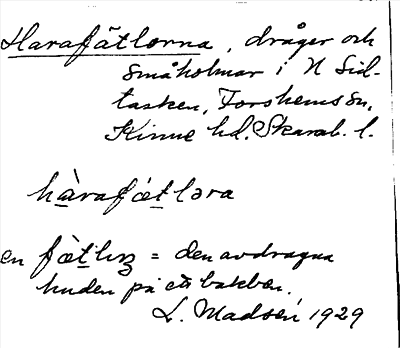 Harafätlorna, dråger och
småholmar i N Sid-
tasken, Forshems sn,
Kinne hd. Skarab. l.
hàrafœtlǝra
en = den avdragna
huden på ett bakben.
L. Madsén 1929